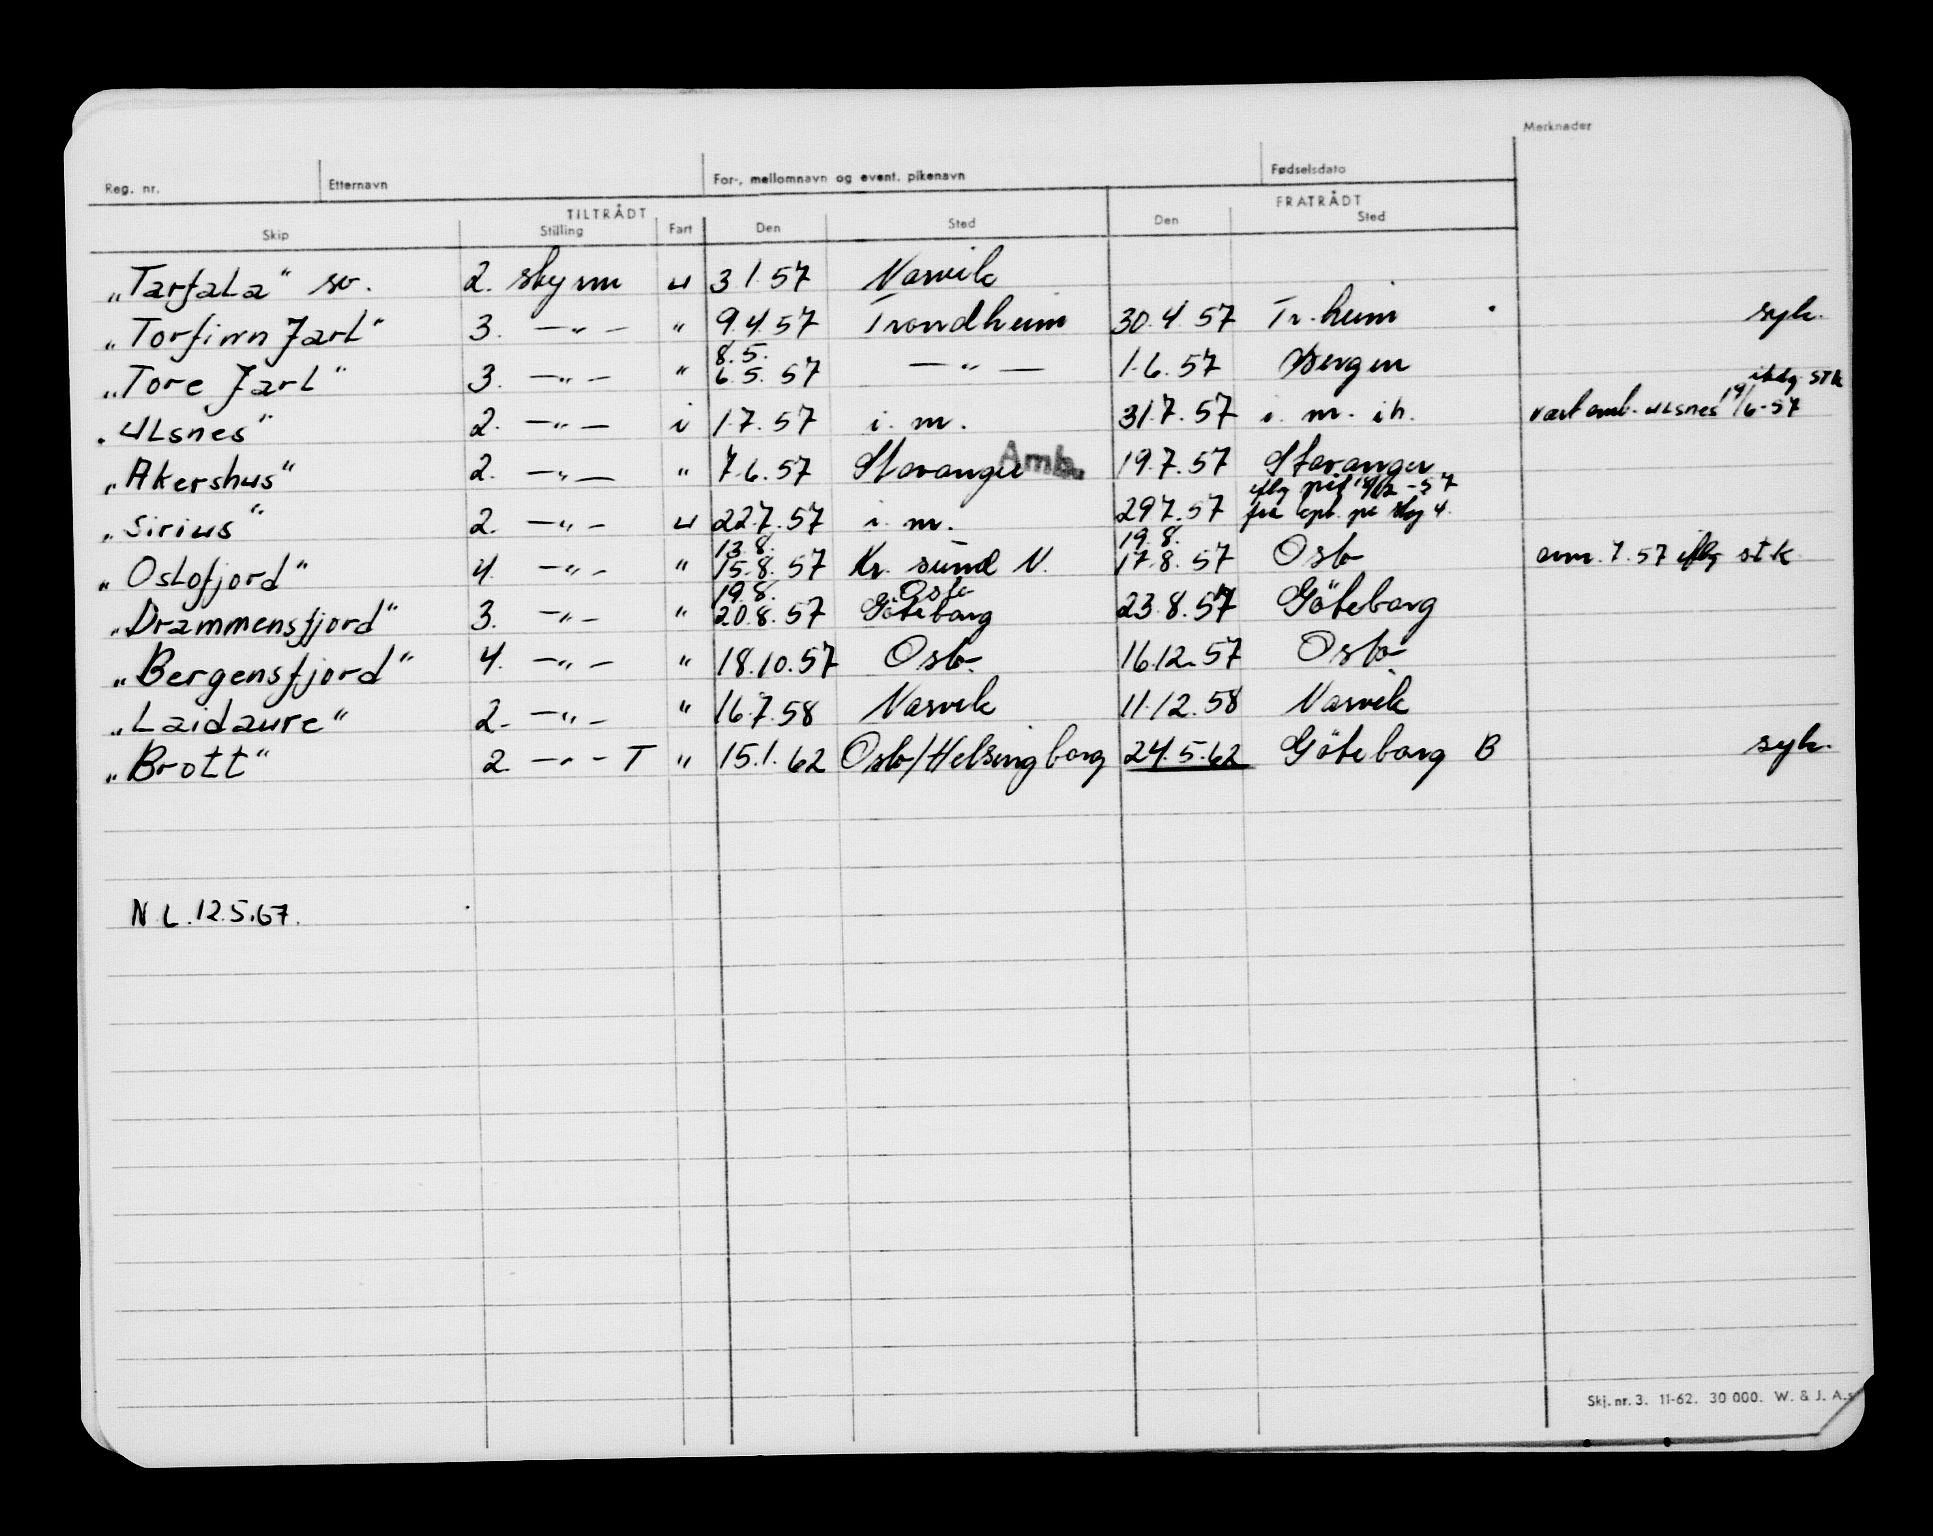 Merknader
Reg. nr. Etternavn For-, mellomnavn og event. pikenavn Fødselsdato
TILTRÅDT FRATRÅDT
Skip Stilling Fart Den Sted Den Sted
„Tarfala" sv. 2. skym u 3 1.57 Narvik
„Torfinn Jarl" 3. —"— " 9.4.57 Trondheim 30.4.57 Tr.heim syk.
8.5.
„Tore Jarl" 3. —"— " 6.5.57 —"— 1.6.57 Bergen
iflg. STK
„Ulsnes" 2. —"— i 1.7.57 i. m. 31.7.57 i. m. ih. vært omb. Ulsnes 14/6-57
„Akershus" 2. —"— " 7.6.57 Stavanger Amb. 19.7.57 Stavanger
iflg -57
„Sirius" 2. —"— u 22.7.57 i. m. 29.7.57 fra
13.8. 19.8.
„Oslofjord" 4. —"— " 15.8.57 Kr. sund N. 17.8.57 Oslo 7.57 iflg stk
19.8. Oslo
„Drammensfjord" 3. —"— " 20.8.57 Göteborg 23.8.57 Göteborg
„Bergensfjord" 4. —"— " 18.10.57 Oslo 16.12.57 Oslo
„Laidaure" 2. —"— " 16.7.58 Narvik 11.12.58 Narvik
„Brott" 2. —"— T " 15.1.62 Oslo/Helsingborg 24.5.62 Göteborg B syk.
N L. 12.5.67.
Skj. nr. 3. 11-62. 30 000. W. & J. A.s